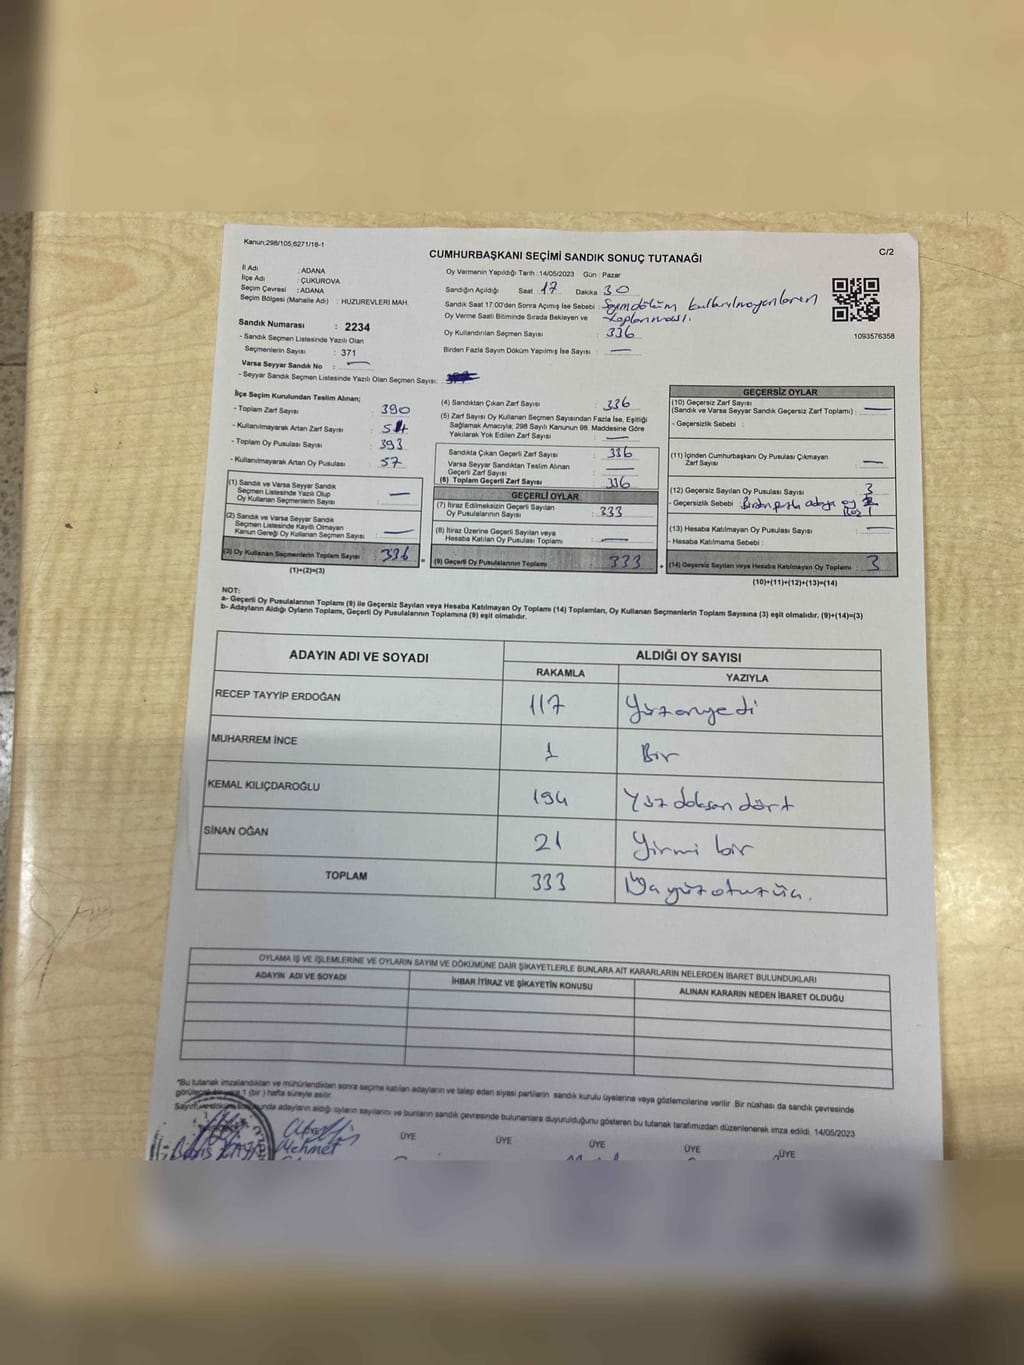 Kanun:298/105,6271/18-1
C/2
CUMHURBAŞKANI SEÇİMİ SANDIK SONUÇ TUTANAĞI
İl Adı : ADANA
İlçe Adı : ÇUKUROVA
Seçim Çevresi : ADANA
Seçim Bölgesi (Mahalle Adı) : HUZUREVLERİ MAH.
Sandık Numarası : 2234
- Sandık Seçmen Listesinde Yazılı Olan
Seçmenlerin Sayısı : 371
Varsa Seyyar Sandık No : —
- Seyyar Sandık Seçmen Listesinde Yazılı Olan Seçmen Sayısı:
Oy Vermenin Yapıldığı Tarih : 14/05/2023 Gün : Pazar
Sandığın Açıldığı Saat : 17 Dakika : 30
Sandık Saat 17:00'den Sonra Açmış İse Sebebi : Sayım döküm kullanılmayanların
Oy Verme Saati Bitiminde Sırada Bekleyen ve toplanması.
Oy Kullandırılan Seçmen Sayısı : 336
Birden Fazla Sayım Döküm Yapılmış İse Sayısı : —
1093576358
İlçe Seçim Kurulundan Teslim Alınan;
- Toplam Zarf Sayısı : 390
- Kullanılmayarak Artan Zarf Sayısı : 54
- Toplam Oy Pusulası Sayısı : 393
- Kullanılmayarak Artan Oy Pusulası : 57
(1) Sandık ve Varsa Seyyar Sandık
Seçmen Listesinde Yazılı Olup
Oy Kullanan Seçmenlerin Sayısı : —
(2) Sandık ve Varsa Seyyar Sandık
Seçmen Listesinde Kayıtlı Olmayan
Kanun Gereği Oy Kullanan Seçmen Sayısı : —
(3) Oy Kullanan Seçmenlerin Toplam Sayısı : 336
(1)+(2)=(3)
(4) Sandıktan Çıkan Zarf Sayısı : 336
(5) Zarf Sayısı Oy Kullanan Seçmen Sayısından Fazla İse, Eşitliği
Sağlamak Amacıyla; 298 Sayılı Kanunun 98. Maddesine Göre
Yakılarak Yok Edilen Zarf Sayısı : —
Sandıkta Çıkan Geçerli Zarf Sayısı : 336
Varsa Seyyar Sandıktan Teslim Alınan
Geçerli Zarf Sayısı : —
(6) Toplam Geçerli Zarf Sayısı : 336
GEÇERLİ OYLAR
(7) İtiraz Edilmeksizin Geçerli Sayılan
Oy Pusulalarının Sayısı : 333
(8) İtiraz Üzerine Geçerli Sayılan veya
Hesaba Katılan Oy Pusulası Toplamı : —
= (9) Geçerli Oy Pusulalarının Toplamı : 333
GEÇERSİZ OYLAR
(10) Geçersiz Zarf Sayısı
(Sandık ve Varsa Seyyar Sandık Geçersiz Zarf Toplamı) : —
- Geçersizlik Sebebi :
(11) İçinden Cumhurbaşkanı Oy Pusulası Çıkmayan
Zarf Sayısı : —
(12) Geçersiz Sayılan Oy Pusulası Sayısı : 3
- Geçersizlik Sebebi : Birden fazla adaya oy
(13) Hesaba Katılmayan Oy Pusulası Sayısı : —
- Hesaba Katılmama Sebebi :
+ (14) Geçersiz Sayılan veya Hesaba Katılmayan Oy Toplamı : 3
(10)+(11)+(12)+(13)=(14)
NOT:
a- Geçerli Oy Pusulalarının Toplamı (9) ile Geçersiz Sayılan veya Hesaba Katılmayan Oy Toplamı (14) Toplamları, Oy Kullanan Seçmenlerin Toplam Sayısına (3) eşit olmalıdır. (9)+(14)=(3)
b- Adayların Aldığı Oyların Toplamı, Geçerli Oy Pusulalarının Toplamına (9) eşit olmalıdır.
ADAYIN ADI VE SOYADI ALDIĞI OY SAYISI
RAKAMLA YAZIYLA
RECEP TAYYİP ERDOĞAN 117 Yüzonyedi
MUHARREM İNCE 1 Bir
KEMAL KILIÇDAROĞLU 194 Yüz doksan dört
SİNAN OĞAN 21 Yirmi bir
TOPLAM 333 Üçyüzotuzüç.
OYLAMA İŞ VE İŞLEMLERİNE VE OYLARIN SAYIM VE DÖKÜMÜNE DAİR ŞİKAYETLERLE BUNLARA AİT KARARLARIN NELERDEN İBARET BULUNDUKLARI
ADAYIN ADI VE SOYADI İHBAR İTİRAZ VE ŞİKAYETİN KONUSU ALINAN KARARIN NEDEN İBARET OLDUĞU
*Bu tutanak imzalandıktan ve mühürlendikten sonra seçime katılan adayların ve talep eden siyasi partilerin sandık kurulu üyelerine veya gözlemcilerine verilir. Bir nüshası da sandık çevresinde
görülecek bir yere 1 (bir) hafta süreyle asılır.
Sayım ve döküm sonucunda adayların aldığı oyların sayılarını ve bunların sandık çevresinde bulunanlara duyurulduğunu gösteren bu tutanak tarafımızdan düzenlenerek imza edildi. 14/05/2023
ÜYE ÜYE ÜYE ÜYE ÜYE ÜYE
Mehmet